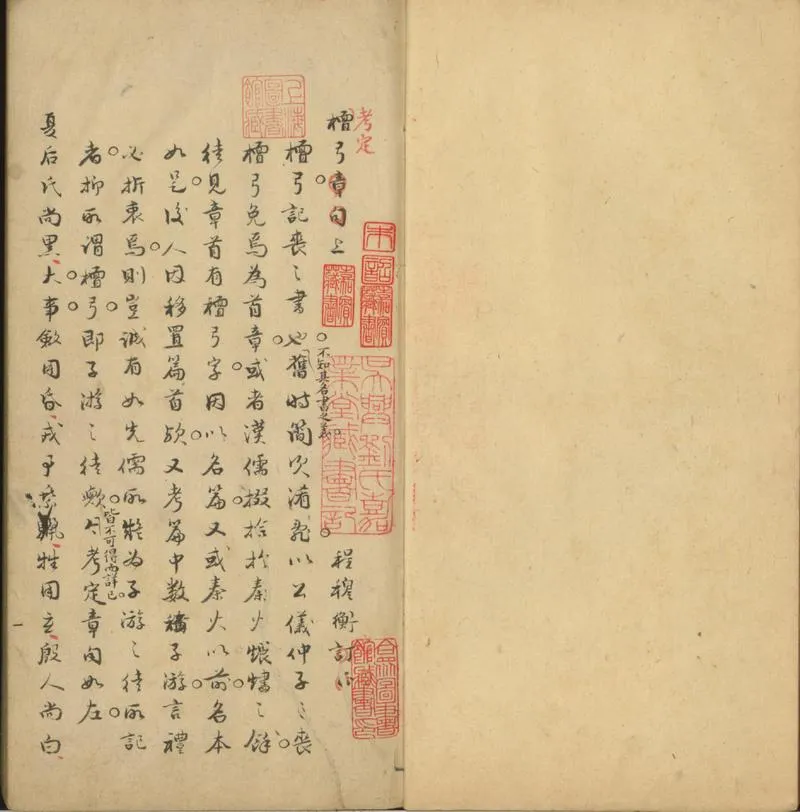 考定
檀弓章句上
程穆衡訂
檀弓記喪之書也舊時簡次淆亂以公儀仲子之喪
不知其名書之義
檀弓免焉為首章或者漢儒掇拾於秦火煨燼之餘
徒見章首有檀弓字因以名篇又或秦火以前名本
如是後人因移置篇首歟又考篇中數稱子游言禮
必折衷焉則豈誠有如先儒所疑為子游之徒所記
者抑所謂檀弓即子游之徒歟考定章句如左
皆不可得而詳已
夏后氏尚黑大事斂用昏戎事乘驪牲用玄殷人尚白
上海圖書館藏
朱記
嘉業藏書
吳興劉氏嘉業堂藏書記
圖書館藏書